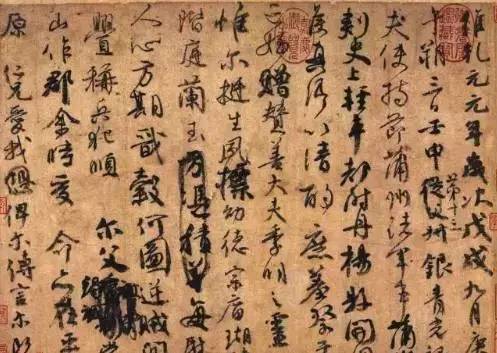 維乾元元年歲次戊戌九月庚
午朔三日壬申第十三從父銀青光祿
夫使持節蒲州諸軍事蒲
刺史上輕車都尉丹楊縣開國
侯真卿以清酌庶羞祭于
亡姪贈贊善大夫季明之靈
惟爾挺生夙標幼德宗廟瑚
階庭蘭玉方憑積善每慰
人心方期戩穀何圖逆賊間
釁稱兵犯順爾父常
山作郡余時受命亦在平
原仁兄愛我恐俾爾傳言爾既